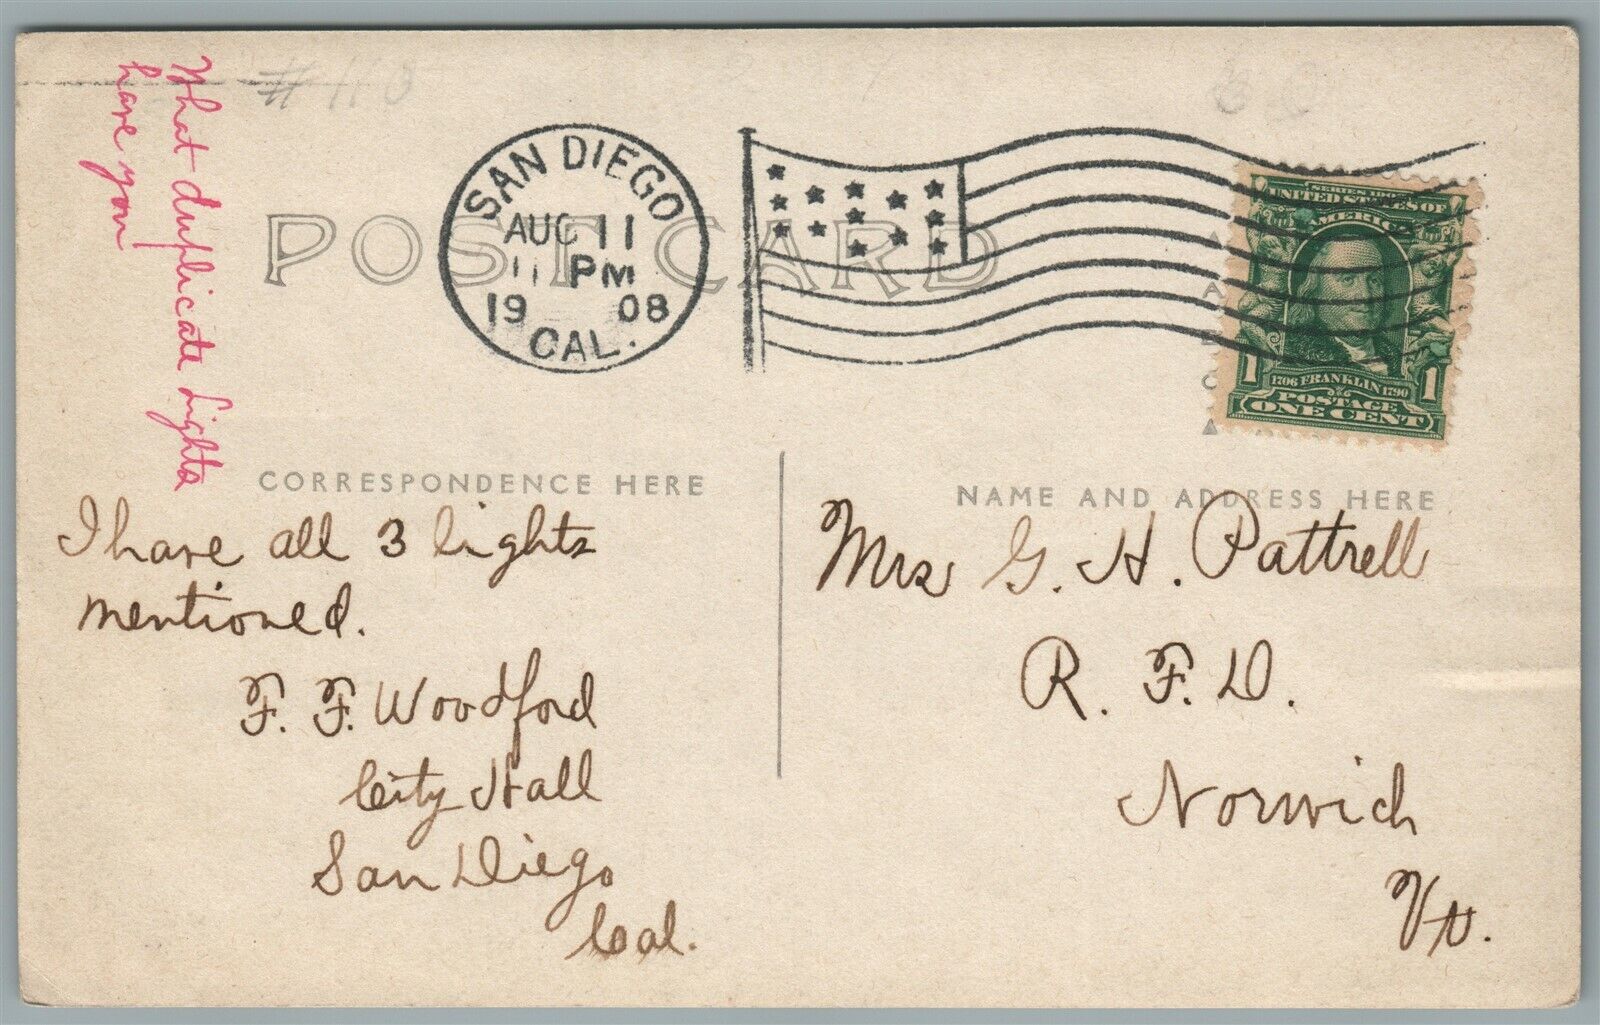 What duplicate Lights
have you
# 113
SAN DIEGO
AUG 11
11 PM
19 08
CAL.
POST CARD
UNITED STATES OF
AMERICA
1706 FRANKLIN 1790
1 1
POSTAGE
ONE CENT
CORRESPONDENCE HERE
I have all 3 lights
mentioned.
F. F. Woodford
City Hall
San Diego
Cal.
NAME AND ADDRESS HERE
Mrs G. H. Pattrell
R. F. D.
Norwich
Vt.